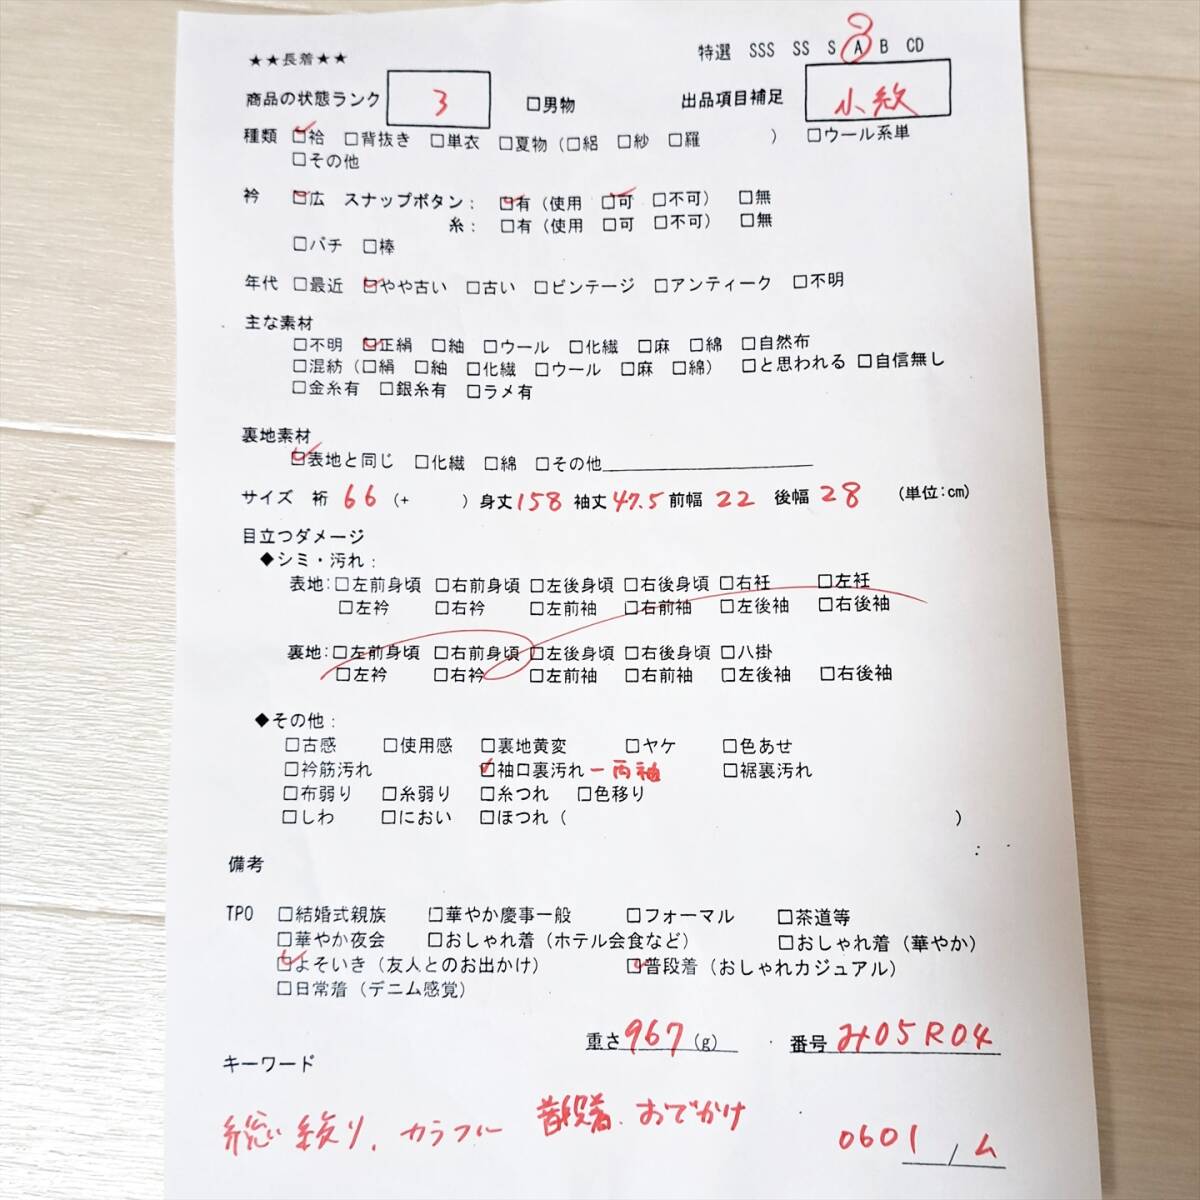 ★★長着★★ 特選 SSS SS S A B CD
商品の状態ランク 3 □男物 出品項目補足 小紋
種類 ☑袷 □背抜き □単衣 □夏物（□絽 □紗 □羅 ） □ウール系単
□その他
衿 ☑広 スナップボタン： ☑有（使用 ☑可 □不可） □無
糸：□有（使用 □可 □不可） □無
□バチ □棒
年代 □最近 ☑やや古い □古い □ビンテージ □アンティーク □不明
主な素材
□不明 ☑正絹 □紬 □ウール □化繊 □麻 □綿 □自然布
□混紡（□絹 □紬 □化繊 □ウール □麻 □綿） □と思われる □自信無し
□金糸有 □銀糸有 □ラメ有
裏地素材
☑表地と同じ □化繊 □綿 □その他
サイズ 裄 66 （+ ）身丈158 袖丈47.5 前幅 22 後幅 28 （単位:cm）
目立つダメージ
◆シミ・汚れ：
表地：□左前身頃 □右前身頃 □左後身頃 □右後身頃 □右衽 □左衽
□左衿 □右衿 □左前袖 □右前袖 □左後袖 □右後袖
裏地：□左前身頃 □右前身頃 □左後身頃 □右後身頃 □八掛
□左衿 □右衿 □左前袖 □右前袖 □左後袖 □右後袖
◆その他：
□古感 □使用感 □裏地黄変 □ヤケ □色あせ
□衿筋汚れ ☑袖口裏汚れ ー両袖 □裾裏汚れ
□布弱り □糸弱り □糸つれ □色移り
□しわ □におい □ほつれ（ ）
備考
TPO □結婚式親族 □華やか慶事一般 □フォーマル □茶道等
□華やか夜会 □おしゃれ着（ホテル会食など） □おしゃれ着（華やか）
☑よそいき（友人とのお出かけ） ☑普段着（おしゃれカジュアル）
□日常着（デニム感覚）
重さ 967 (g) 番号 み05R04
キーワード
総絞り、カラフル 普段着、おでかけ
0601 / ム